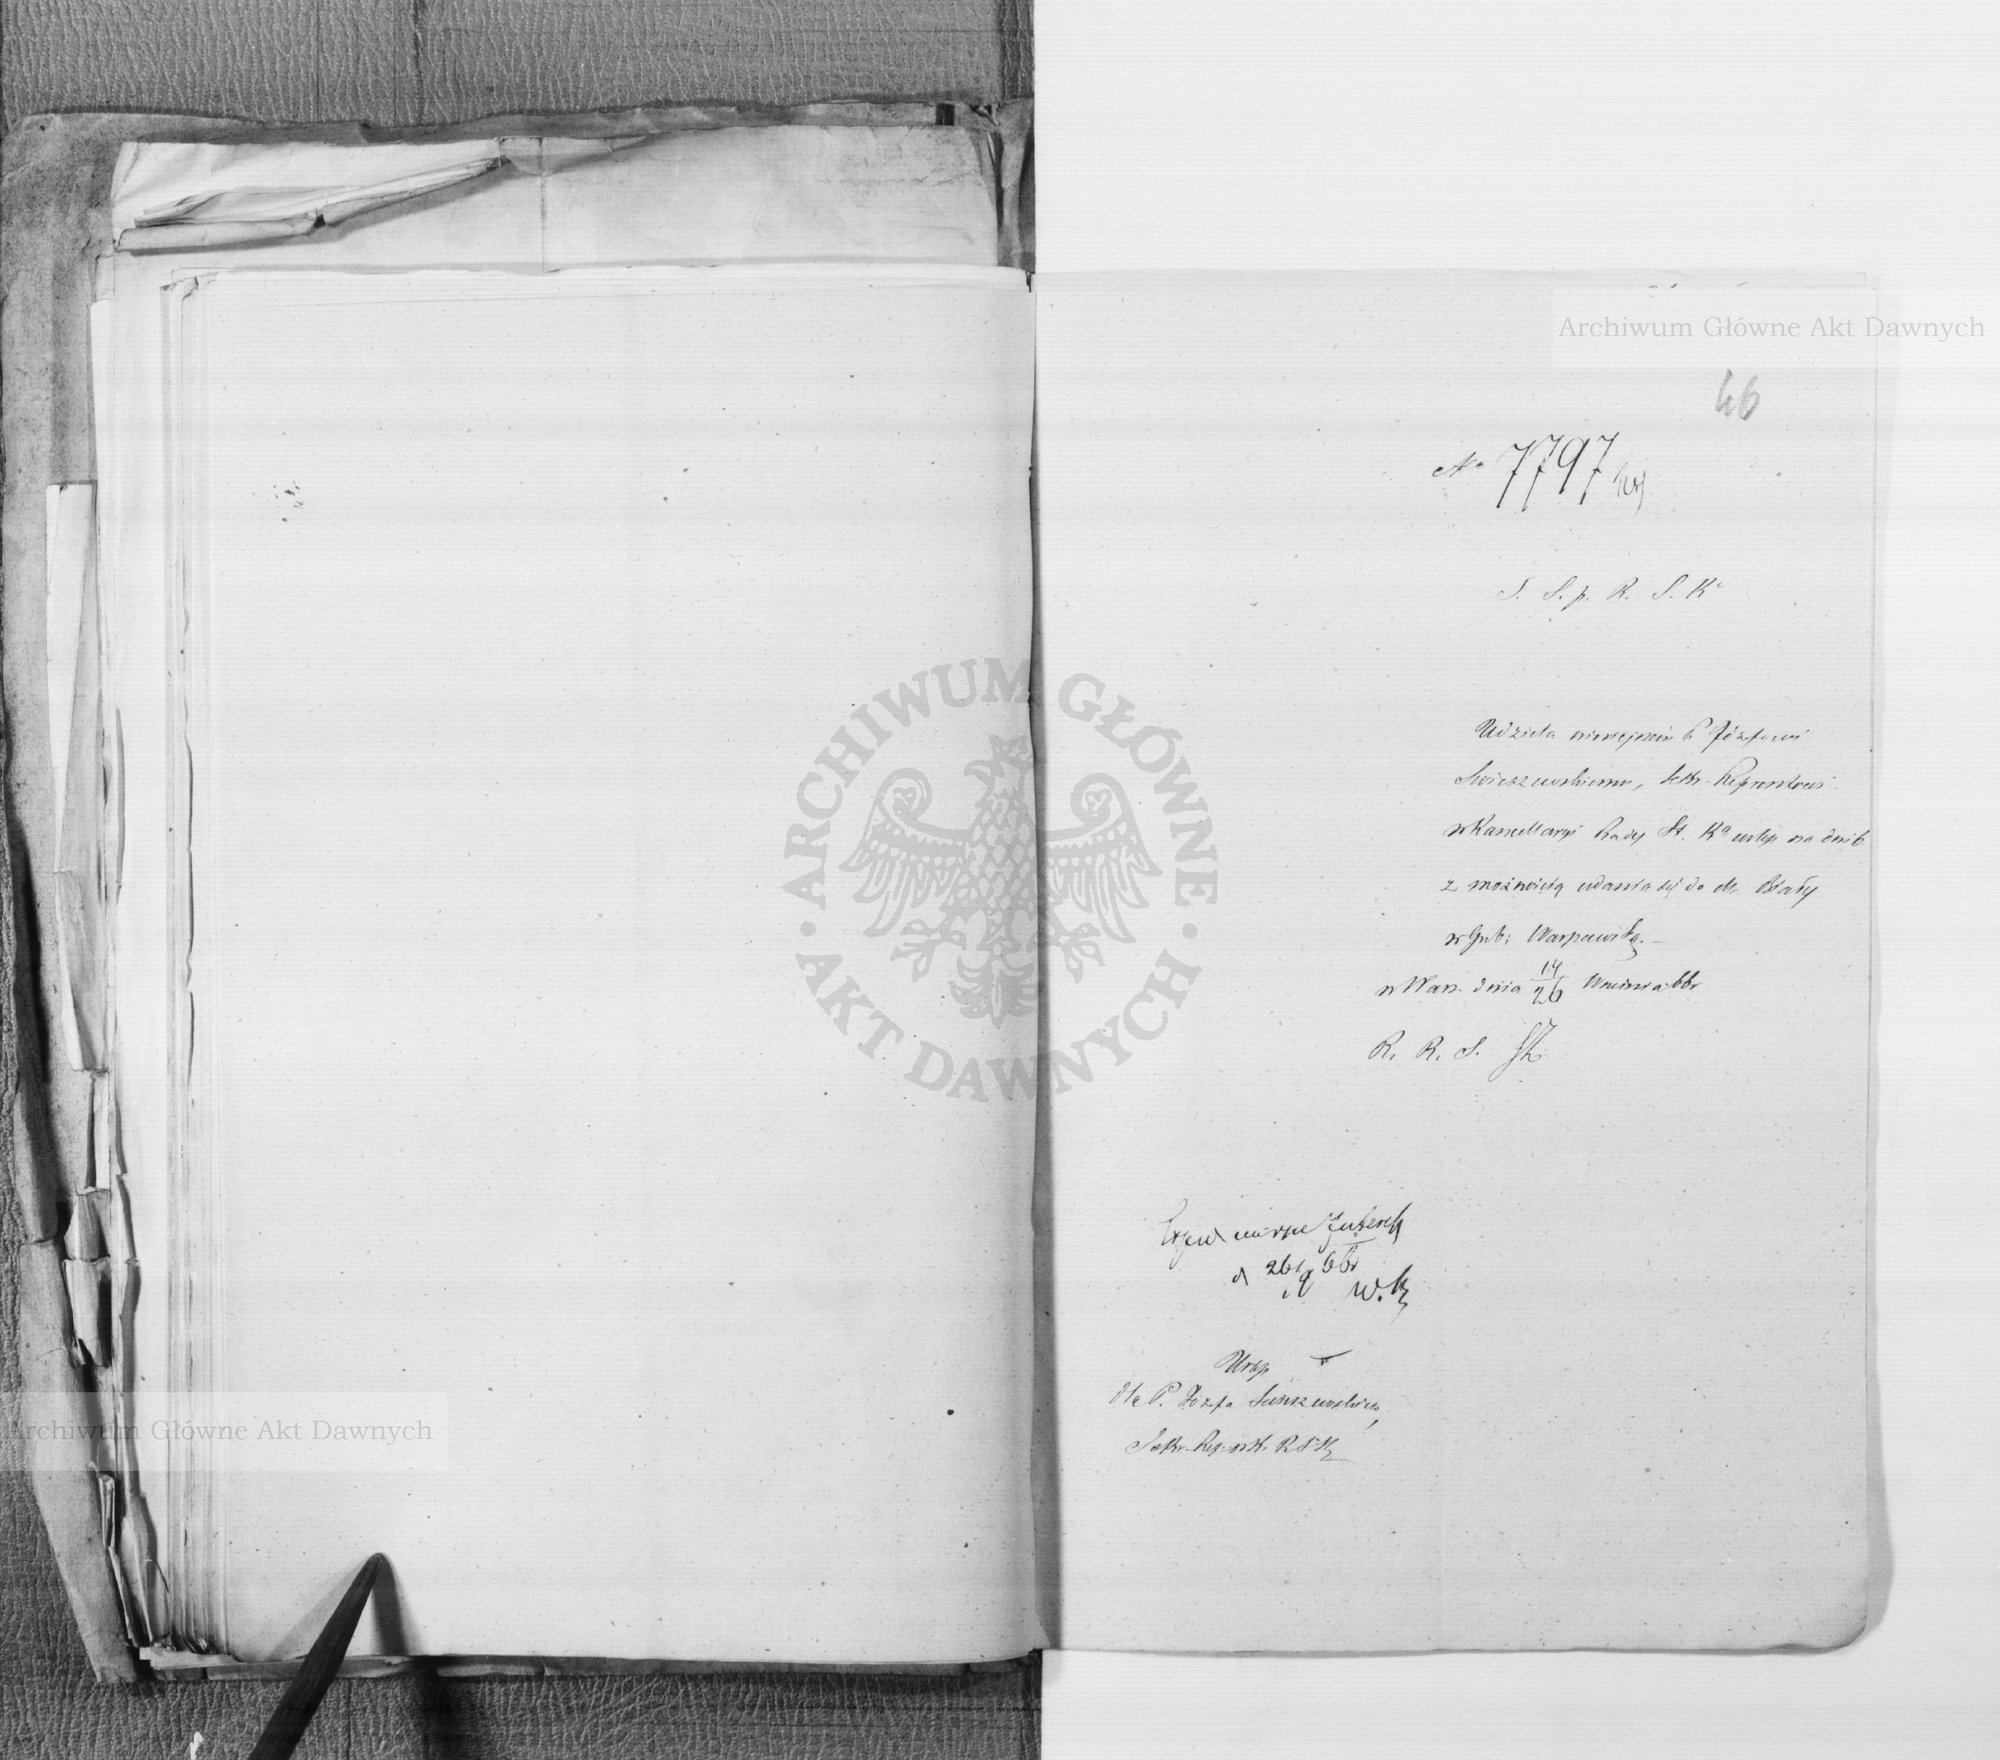 Archiwum Główne Akt Dawnych
46
No 7797
S. S. p. R. S. Ka
Udziela niniejszem P. Józefowi
Swieszewskiemu, Sekr.
w Kancellaryi Rady St. Ka urlop na dni 6
z możnością udania się do m. Biały
w Gub: Warszawską. —
w Warsz. dnia 14/26 Września 66r
R. R. S.
d 26/9 66r
W. K.
Urlop
dla P. Józefa Swieszewskiego,
Sekr. Rej. w K. R S K
ARCHIWUM GŁÓWNE
AKT DAWNYCH
Archiwum Główne Akt Dawnych